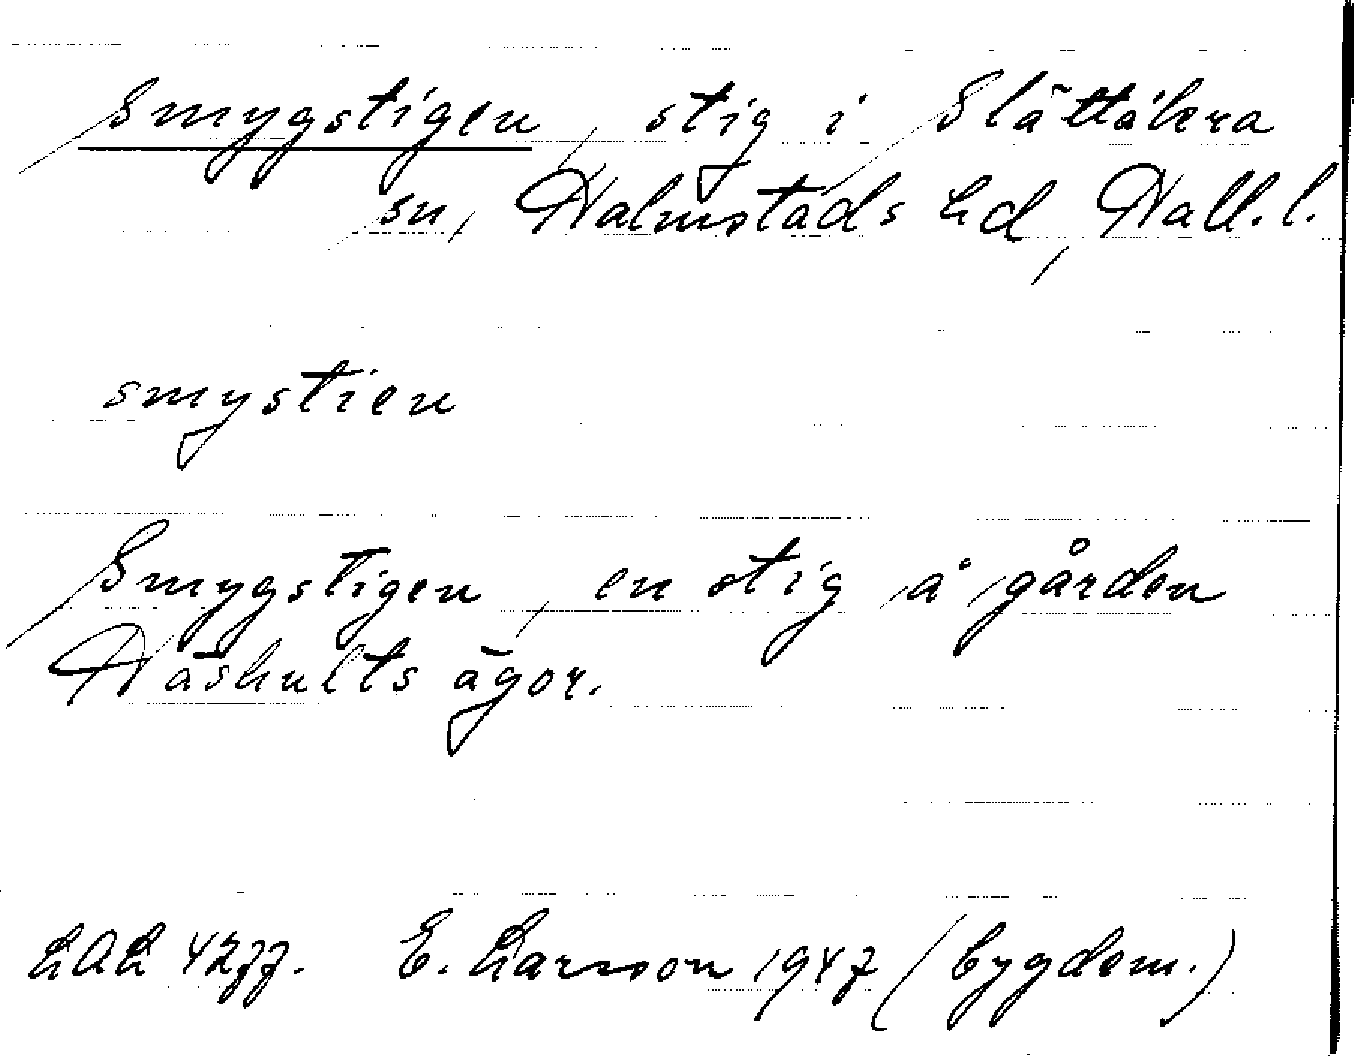 Smygstigen, stig i Slättåkra
sn, Halmstads hd, Hall. l.
smystien
Smygstigen, en stig å gården
Håshults ägor.
LAL 4277. E. Larsson 1947 (bygdem.)